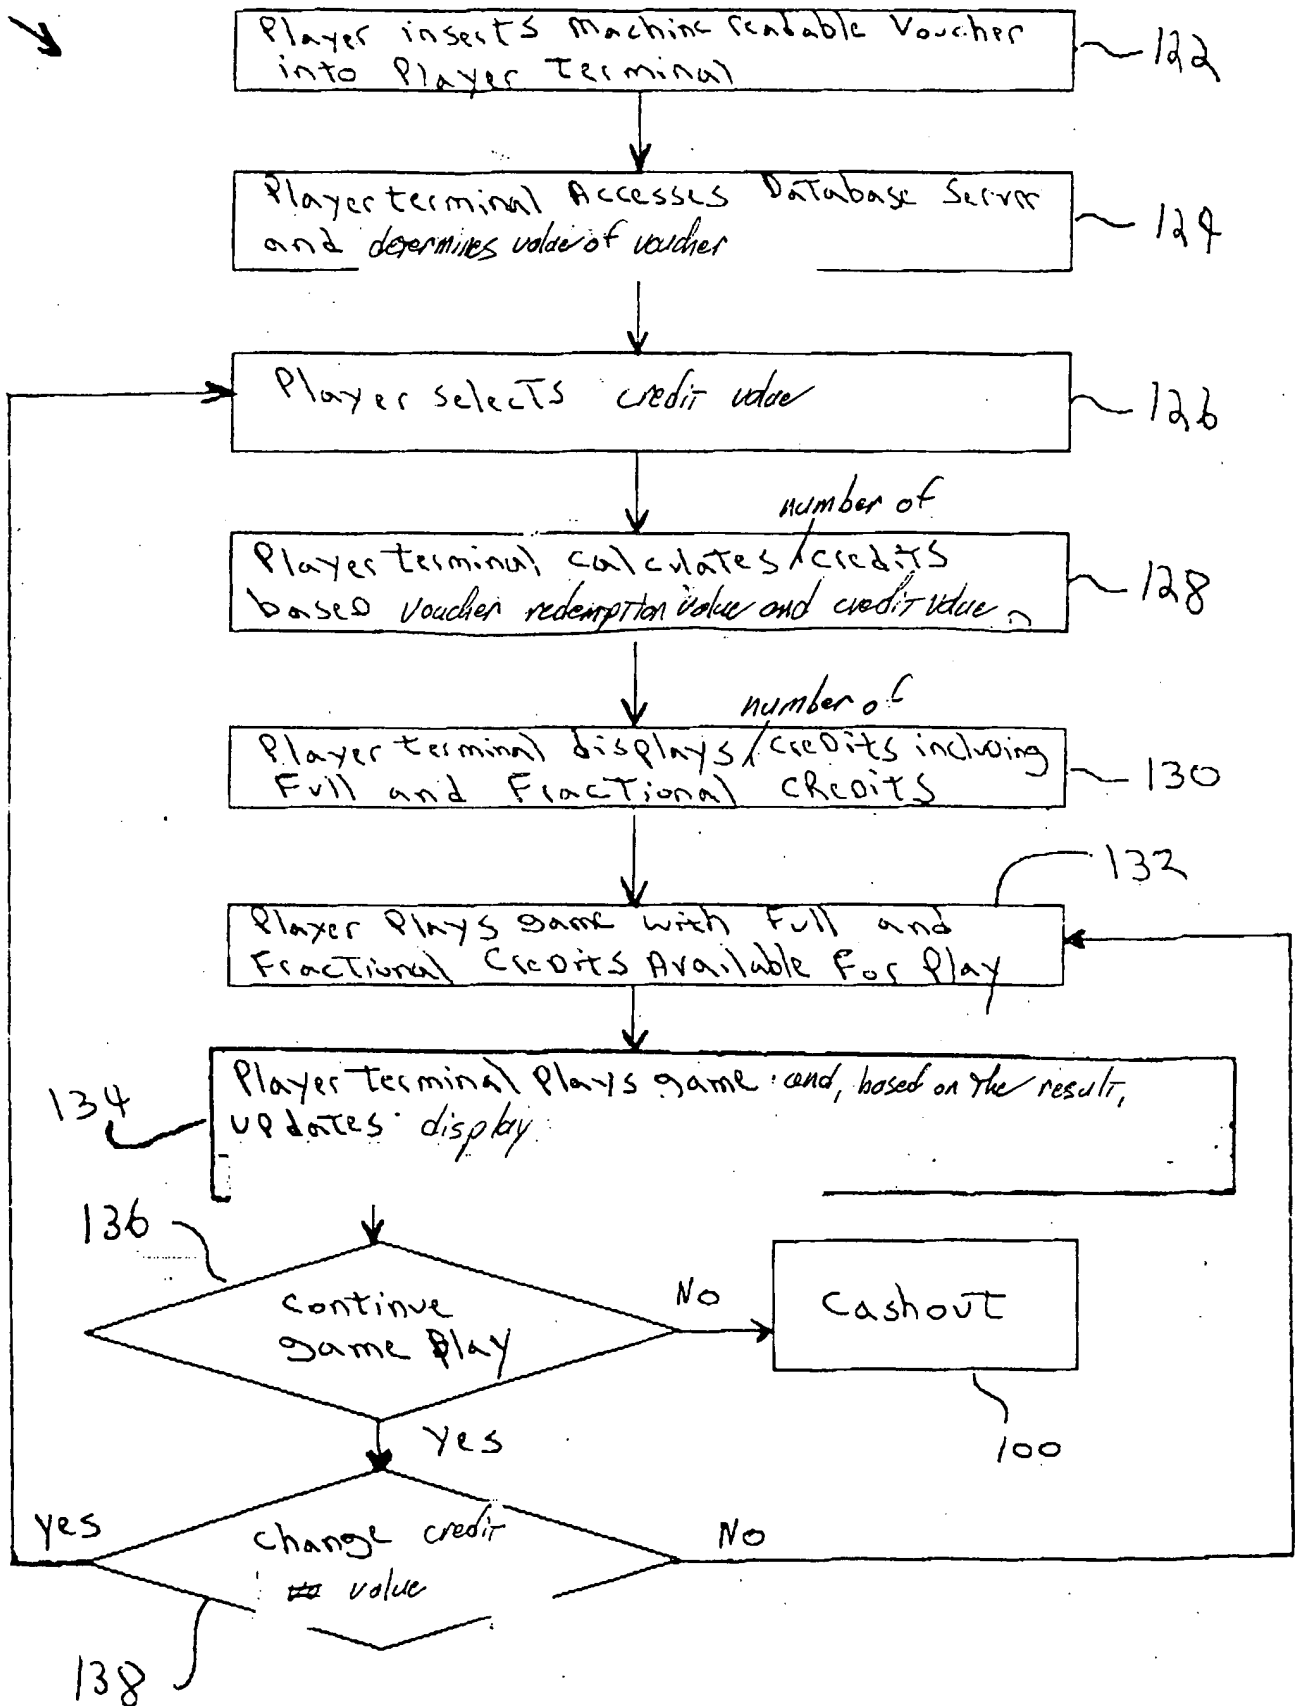 Player inserts Machine readable Voucher
into Player Terminal
122
Player terminal Accesses Database Server
and determines value of voucher
124
Player selects credit value
126
number of
Player terminal calculates credits
based voucher redemption value and credit value
128
number of
Player terminal displays credits including
Full and Fractional Credits
130
132
Player Plays game with Full and
Fractional Credits Available For Play
Player Terminal Plays game and, based on the result,
updates display
134
136
continue
game play
No
Cashout
100
Yes
yes
change credit
value
No
138